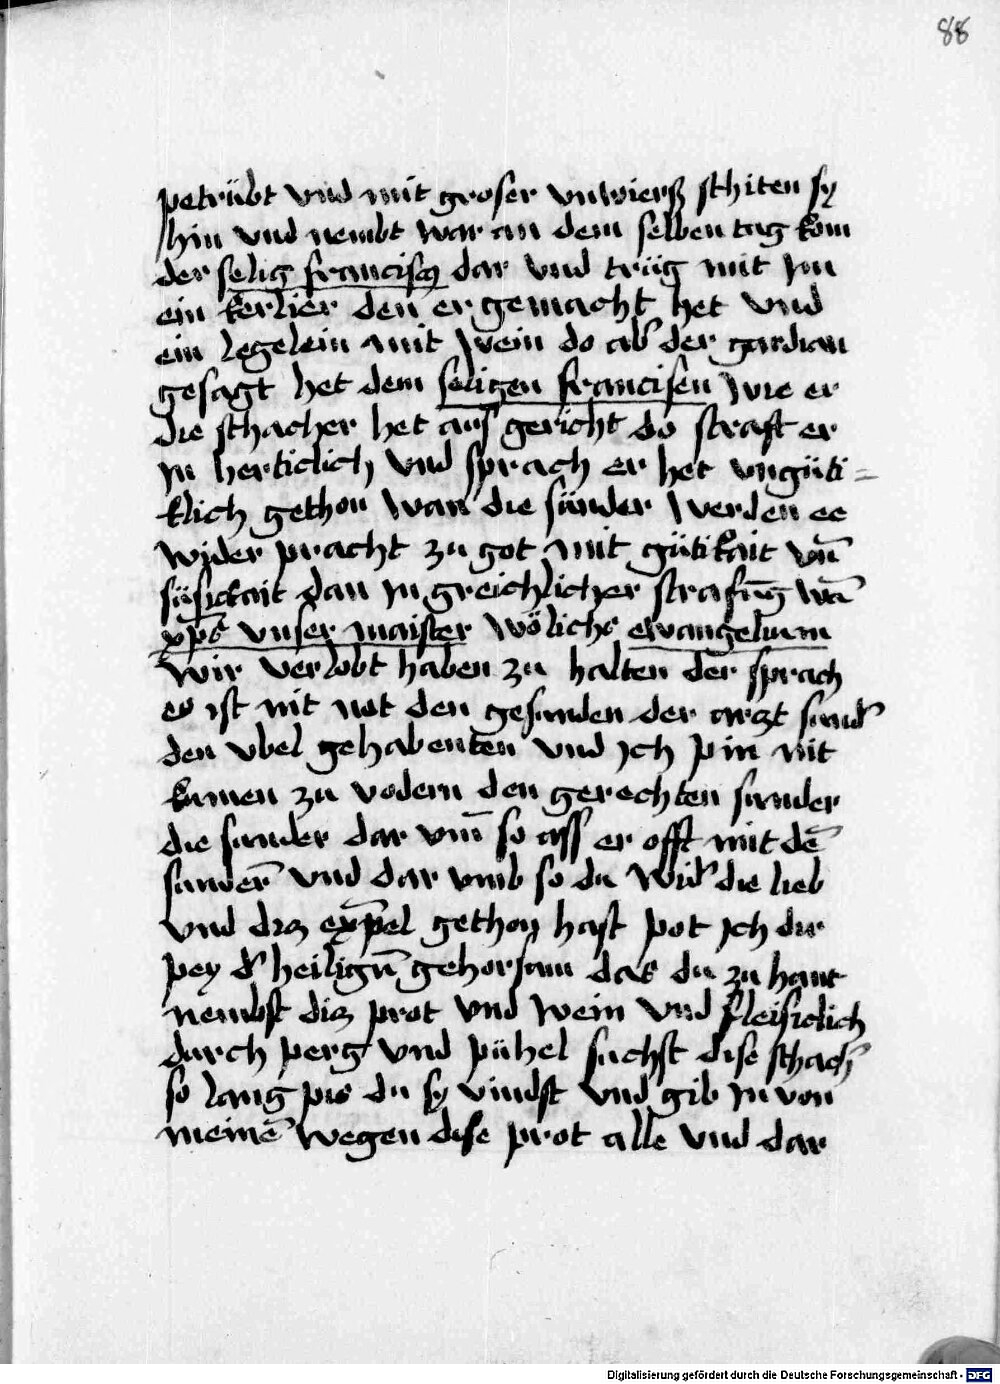 88
petrübt vnd mit groser vnwierß schiten sy
hin vnd nembt war an dem selben tag kom
der selig franciscꝰ dar vnd trüg mit Im
ein kerlier den er gemacht het vnd
ein legelein mit wein do ab' der gardian
gesagt het dem seligen francisen wie er
die schacher het auſ gericht do straft er
In herticlich vnd sprach er het vngüti=
klich gethon wan die sünder werden ee
wider pracht zu got mit gütikait vn̄
süsickait dan In greichlicher strafūg wā
xp̄s vnser maister wölichs ewangelium
wir verlobt haben zu halten der sprach
es ist nit not den gesunden der arzt sund'
den vbel gehabenten vnd Ich pin nit
kumen zu vodern den gerechten sunder
die sunder dar vm̄ so ass er offt mit dē
sunderr̄ vnd dar vmb so du wid' die lieb
vnd diz exp̄el gethon hast pot Ich dir
pey d' heiligū gehorsam das du zu hant
nembst diz prot vnd wein vnd fleisiclich
durch perg vnd pühel suchst dise schach'
so lang pis du sy vindst vnd gib In von
meinē wegen dise prot alle vnd dar
Digitalisierung gefördert durch die Deutsche Forschungsgemeinschaft - DFG